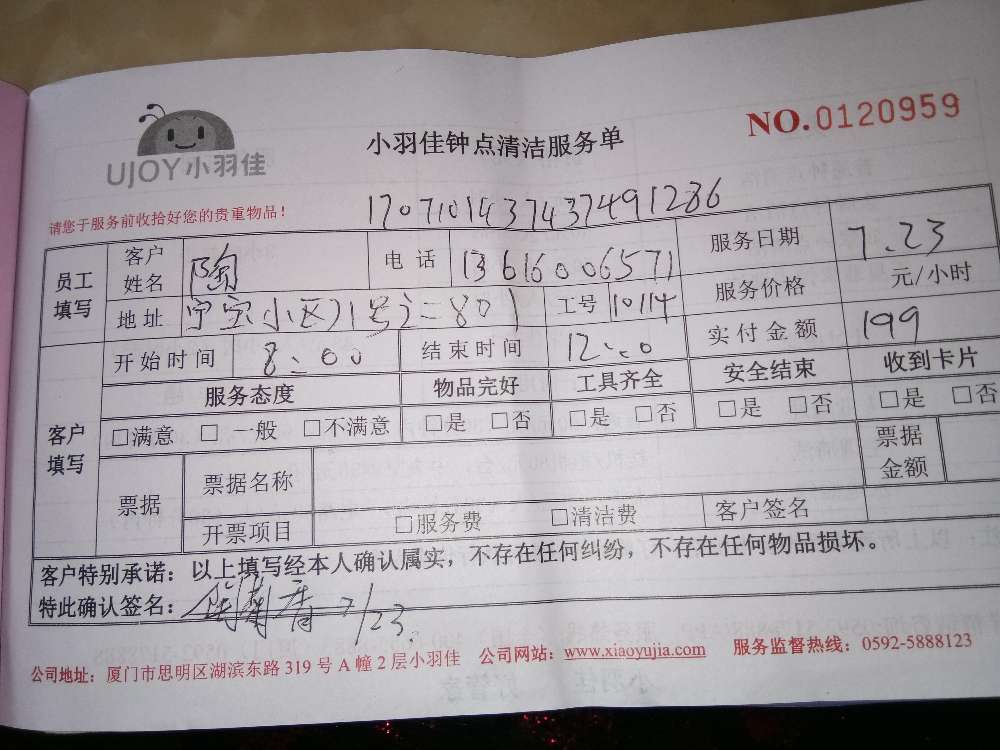 UJOY小羽佳
小羽佳钟点清洁服务单
NO.0120959
请您于服务前收拾好您的贵重物品!
1707101437437491286
员工填写 客户姓名 陶 电话 13616006571 服务日期 7.23
地址 小区 801 工号 10114 服务价格 元/小时
客户填写 开始时间 8:00 结束时间 12:00 实付金额 199
服务态度 物品完好 工具齐全 安全结束 收到卡片
□满意 □一般 □不满意 □是 □否 □是 □否 □是 □否 □是 □否
票据 票据名称 票据金额
开票项目 □服务费 □清洁费 客户签名
客户特别承诺：以上填写经本人确认属实，不存在任何纠纷，不存在任何物品损坏。
特此确认签名： 7/23.
公司地址：厦门市思明区湖滨东路319号A幢2层小羽佳 公司网站：www.xiaoyujia.com 服务监督热线：0592-5888123